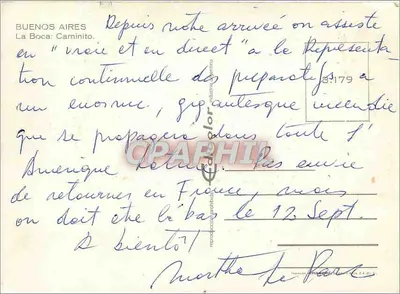 BUENOS AIRES
La Boca: Caminito.
Depuis notre arrivée on assiste
en "vraie et en direct" a la Représenta-
tion continuelle des préparatifs a
un enorme, gigantesque incendie
5179
que se propagera dans toute l'
Amerique Latine. Pas envie
de retourner en France, mais
on doit etre là bas le 12 Sept.
A bientôt!
Martha Le Parc
CPAPHIL
Edicolor